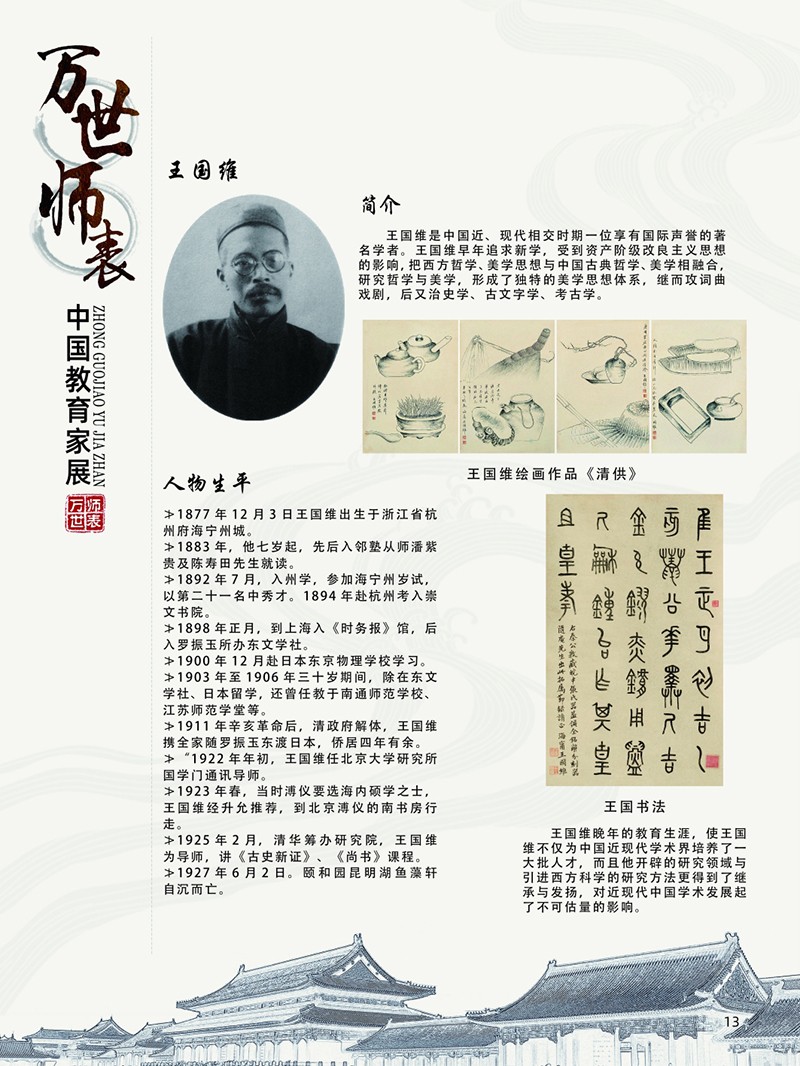 万世师表
中国教育家展
ZHONG GUOJIAO YU JIA ZHAN
万世师表
王国维
简介
王国维是中国近、现代相交时期一位享有国际声誉的著
名学者。王国维早年追求新学，受到资产阶级改良主义思想
的影响，把西方哲学、美学思想与中国古典哲学、美学相融合，
研究哲学与美学，形成了独特的美学思想体系，继而攻词曲
戏剧，后又治史学、古文字学、考古学。
王国维绘画作品《清供》
人物生平
≯1877 年 12 月 3 日王国维出生于浙江省杭
州府海宁州城。
≯1883 年，他七岁起，先后入邻塾从师潘紫
贵及陈寿田先生就读。
≯1892 年 7 月，入州学，参加海宁州岁试，
以第二十一名中秀才。1894 年赴杭州考入崇
文书院。
≯1898 年正月，到上海入《时务报》馆，后
入罗振玉所办东文学社。
≯1900 年 12 月赴日本东京物理学校学习。
≯1903 年至 1906 年三十岁期间，除在东文
学社、日本留学，还曾任教于南通师范学校、
江苏师范学堂等。
≯1911 年辛亥革命后，清政府解体，王国维
携全家随罗振玉东渡日本，侨居四年有余。
≯“1922 年年初，王国维任北京大学研究所
国学门通讯导师。
≯1923 年春，当时溥仪要选海内硕学之士，
王国维经升允推荐，到北京溥仪的南书房行
走。
≯1925 年 2 月，清华筹办研究院，王国维
为导师，讲《古史新证》、《尚书》课程。
≯1927 年 6 月 2 日。颐和园昆明湖鱼藻轩
自沉而亡。
王国书法
王国维晚年的教育生涯，使王国
维不仅为中国近现代学术界培养了一
大批人才，而且他开辟的研究领域与
引进西方科学的研究方法更得到了继
承与发扬，对近现代中国学术发展起
了不可估量的影响。
13